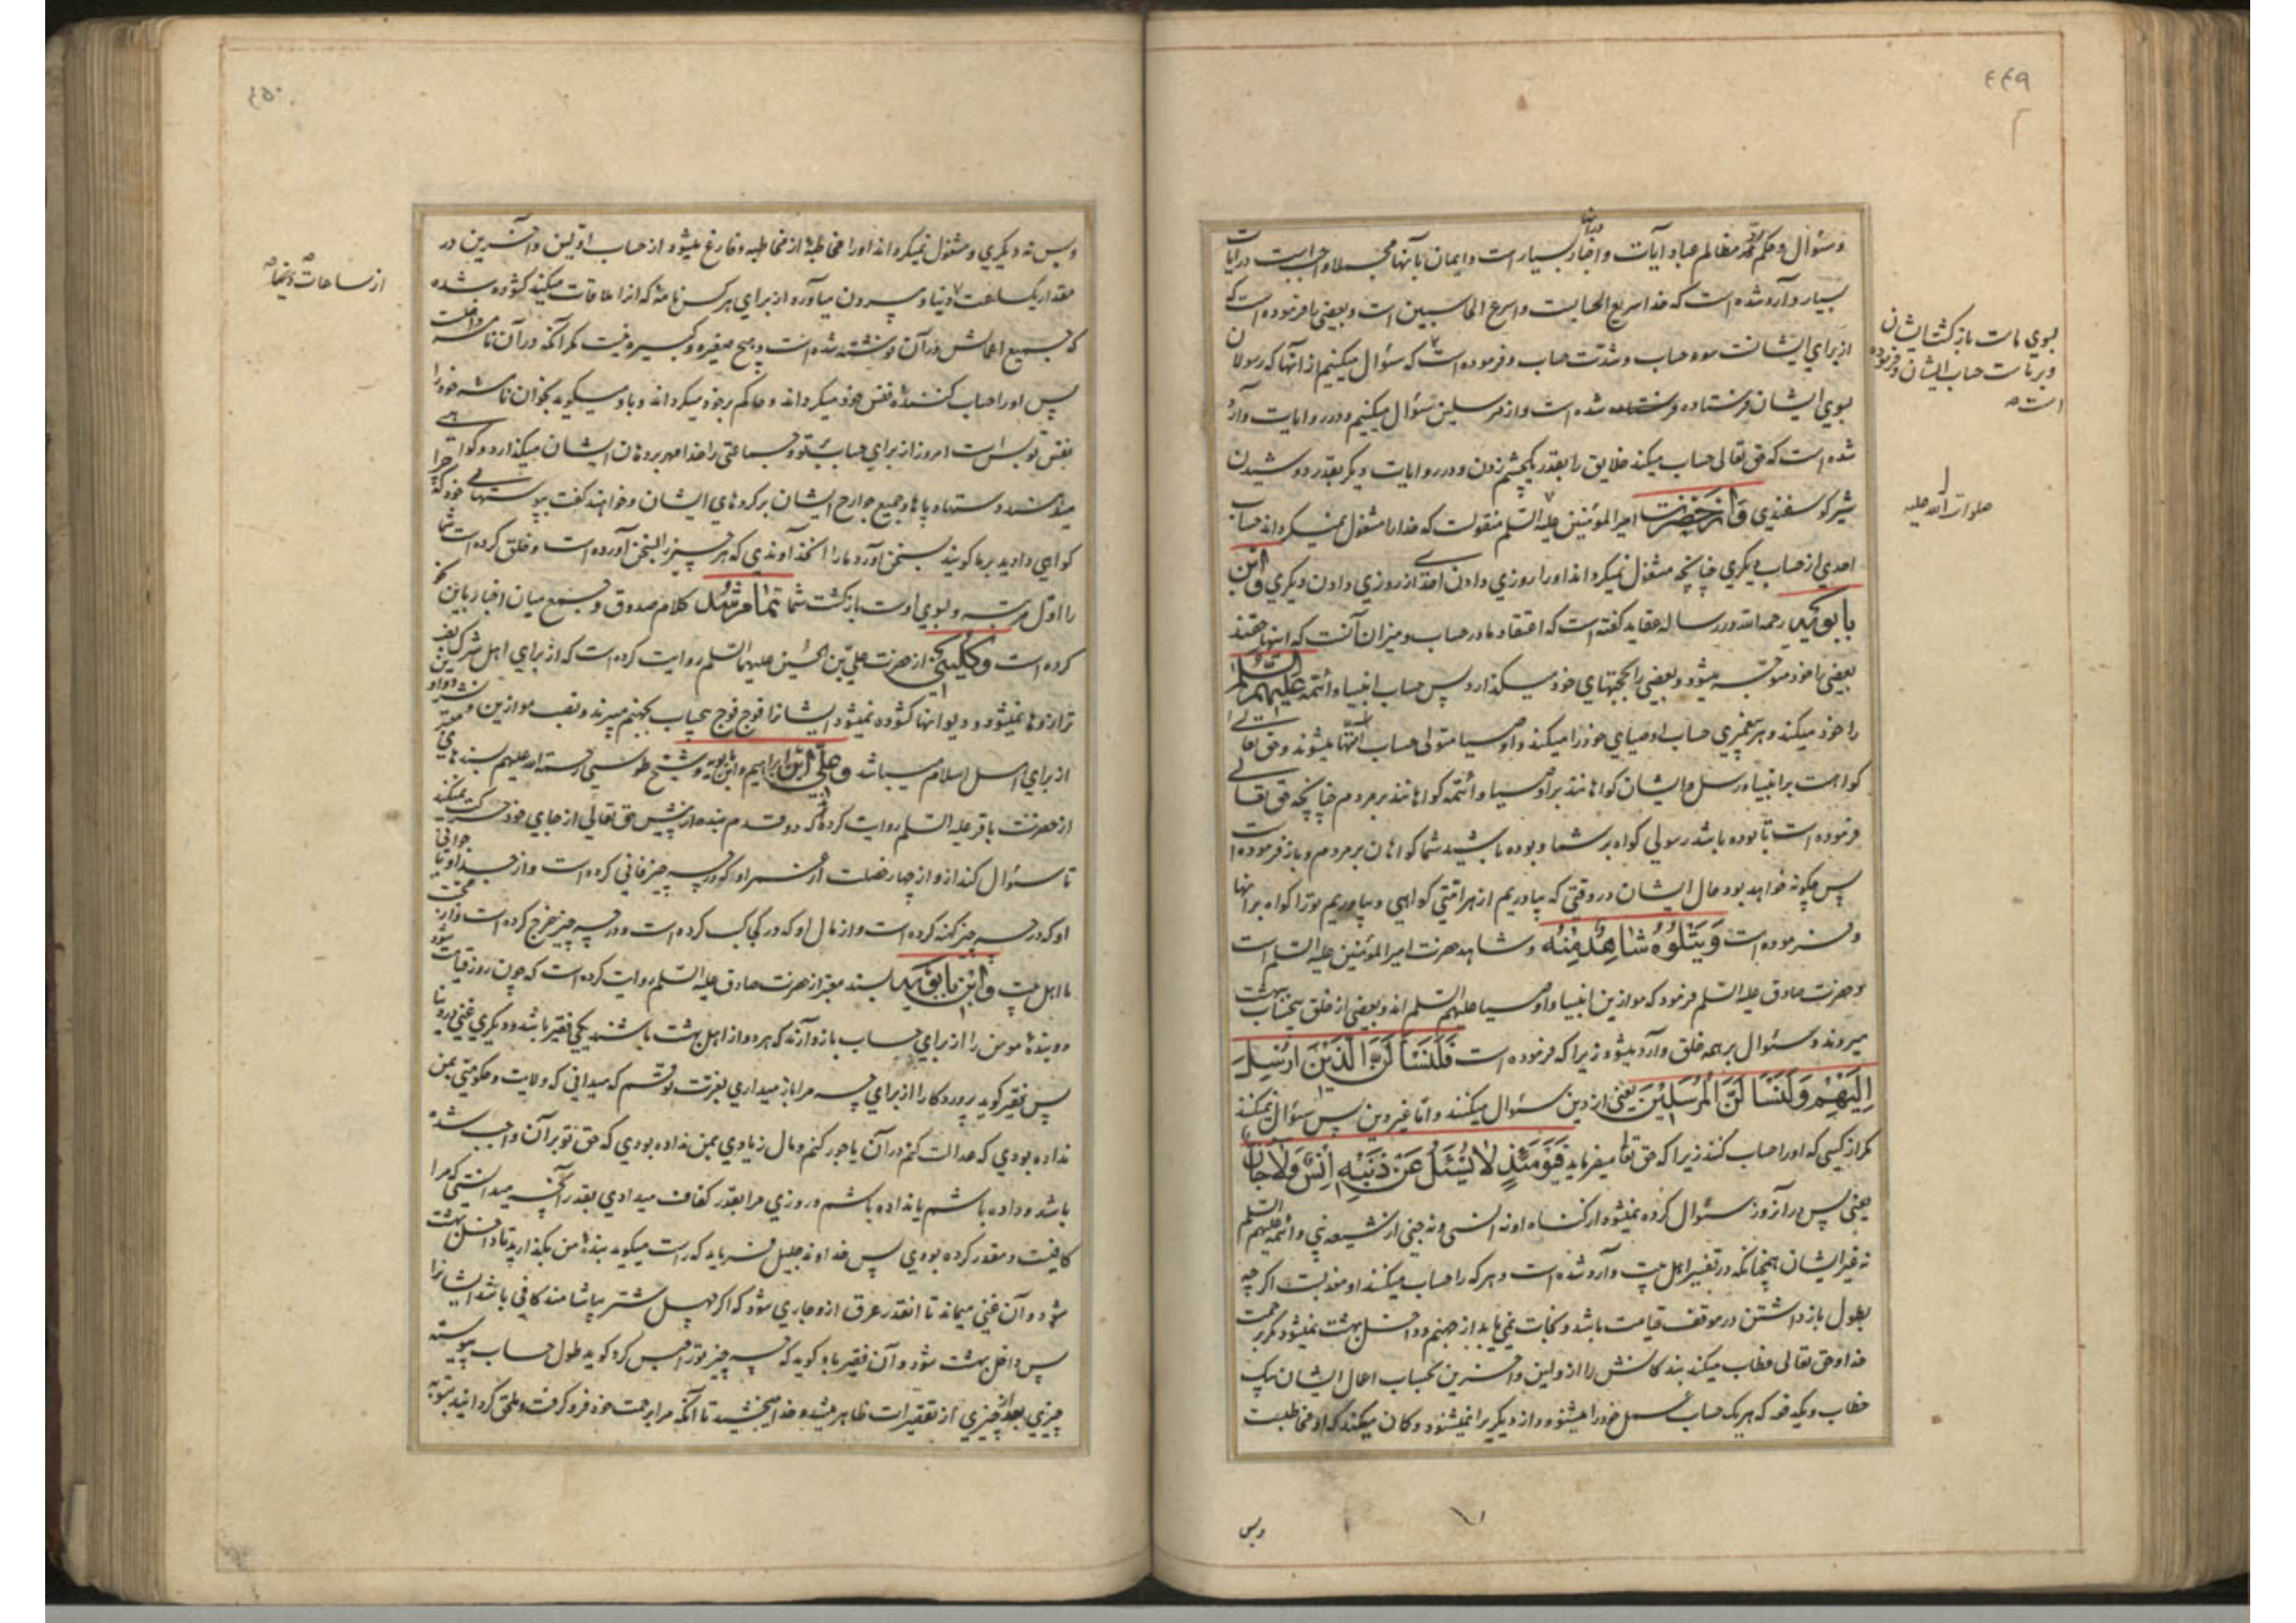 ۴۴۹
وسئوال و حکم مظالم عباد آیات و اخبار بسیار است و ایمان بآنها مجملا واجبست در آیات
بسیار وارد شده است که خدا سریع الحسابست و اسرع الحاسبین است و بعضی را فرموده است که
از برای ایشانست سوء حساب و شدت حساب و فرموده است که سئوال میکنیم از آنها که رسولان
بسوی ایشان فرستاده شده است و از مرسلین سئوال میکنیم و در روایات وارد
شده است که حق تعالی حساب میکند خلایق را بقدر یکچشم زدن و در روایات دیگر بقدر دوشیدن
شیر گوسفندی و از حضرت امیر المؤمنین علیه السلم منقولست که خدا را مشغول نمیگرداند حساب
احدی از حساب دیگری چنانچه مشغول نمیگرداند او را روزی دادن احدی از روزی دادن دیگری و ابن
بابویه رحمه الله در رساله عقاید گفته است که اعتقاد ما در حساب و میزان آنست که اینها حقند
بعضی را خود متوجه میشود و بعضی را بحجتهای خود میگذارد پس حساب انبیا و ائمه علیهم السلم
را خود میکند و هر پیغمبری حساب اوصیای خود را میکند و اوصیا متولی حساب امتها میشوند و حق تعالی
گواه است بر انبیا و رسل و ایشان گواهانند بر اوصیا و ائمه گواهانند بر مردم چنانچه حق تعالی
فرموده است تا بوده باشد رسولی گواه بر شما و بوده باشید شما گواهان بر مردم و باز فرموده است
پس چگونه خواهد بود حال ایشان در وقتی که بیاوریم از هر امتی گواهی و بیاوریم تو را گواه بر آنها
و فرموده است وَيَتْلُوهُ شَاهِدٌ مِنْهُ و شاهد حضرت امیر المؤمنین علیه السلم است
و حضرت صادق علیه السلم فرمود که موازین انبیا و اوصیا علیهم السلم اند و بعضی از خلق بیحساب ببهشت
میروند و سئوال بر همه خلق وارد میشود زیرا که فرموده است فَلَنَسْأَلَنَّ الَّذِينَ أُرْسِلَ
إِلَيْهِمْ وَلَنَسْأَلَنَّ الْمُرْسَلِينَ یعنی از دین سئوال میکنند و اما غیر دین پس سئوال نمیکنند
مگر از کسی که او را حساب کنند زیرا که حق تعالی میفرماید فَيَوْمَئِذٍ لَا يُسْئَلُ عَنْ ذَنْبِهِ إِنْسٌ وَلَا جَانٌّ
یعنی پس در آنروز سئوال کرده نمیشود از گناه او نه انسی و نه جنی از شیعه نبی و ائمه علیهم السلم
نه غیر ایشان همچنانکه در تفسیر اهل بیت وارد شده است و هر که را حساب میکنند او معذبست اگر چه
بطول بازداشتن در موقف قیامت باشد و نجات نمی یابد از جهنم و داخل بهشت نمیشود مگر برحمت
خدا و حق تعالی خطاب میکند بندگانش را از اولین و آخرین بحساب اعمال ایشان بیک
خطاب و یکدفعه که هر یک حساب عمل خود را میشنود و از دیگری را نمیشنود و گمان میکند که او مخاطبست
وبس
بسوی ماست بازگشت ایشان
و بر ماست حساب ایشان و فرموده
است صح
صلوات الله علیه
۴۵۰
وبس نه دیگری و مشغول نمیگرداند او را مخاطبهٔ از مخاطبه و فارغ میشود از حساب اولین و آخرین در
مقدار یکساعت دنیا و بیرون میآورد از برای هر کس نامهٔ که آنرا ملاقات میکند گشوده شده
که جمیع اعمالش در آن نوشته شده است و هیچ صغیره و کبیره نیست مگر آنکه در آن نامه داخلست
پس او را حساب کنندهٔ نفس خود میگرداند و حاکم بر خود میگرداند و باو میگوید بخوان نامهٔ خود را
بنفس تو بس است امروز از برای حساب تو و جماعتی را خدا مهر بر دهان ایشان میگذارد و گواهی
میدهند دستها و پاها و جمیع جوارح ایشان بر کردهای ایشان و خواهند گفت بپوستهای خود که چرا
گواهی دادید بر ما گویند بسخن آورد ما را آنخداوندی که هر چیز را بسخن آورده است و خلق کرده است شما
را اول مرتبه و بسوی اوست بازگشت شما تمام شد کلام صدوق و جمع میان اخبار باین نحو
کرده است و کلینی از حضرت علی بن الحسین علیهما السلم روایت کرده است که از برای اهل شرک نصب
ترازوها نمیشود و دیوانها گشوده نمیشود ایشانرا فوج فوج بیحساب بجهنم میبرند و نصب موازین و نشر دواوین
از برای اهل اسلام میباشد و علی ابن ابراهیم و ابن بابویه و شیخ طوسی رحمة الله علیهم بسندهای معتبر
از حضرت باقر علیه السلم روایت کرده اند که دو قدم بنده از پیش حق تعالی از جای خود حرکت نمیکند
تا سئوال کند از او از چهار خصلت از عمر او که در چه چیز فانی کرده است و از جوانی
او که در چه چیز کهنه کرده است و از مال او که در کجا کسب کرده است و در چه چیز خرج کرده است و از محبت
ما اهل بیت و ابن بابویه بسند معتبر از حضرت صادق علیه السلم روایت کرده است که چون روز قیامت شود
دو بندهٔ مومن را از برای حساب بازدارند که هر دو از اهل بهشت باشند یکی فقیر باشد و دیگری غنی در دنیا
پس فقیر گوید پروردگارا از برای چه مرا باز میداری بعزتت قسم که میدانی که ولایت و حکومتی بمن
نداده بودی که عدالت کنم در آن یا جور کنم و مال زیادی بمن نداده بودی که حق تو بر آن واجب شده
باشد و داده باشم یا نداده باشم و روزی مرا بقدر کفاف میدادی بقدر آنچه میدانستی که مرا
کافیست و مقدر کرده بودی پس خداوند جلیل فرماید که راست میگوید بندهٔ من بگذارید تا داخل بهشت
شود و آن غنی میماند تا آنقدر عرق از او جاری شود که اگر چهل شتر بیاشامند کافی باشد ایشانرا
پس داخل بهشت شود و آن فقیر باو گوید که چه چیز ترا حبس کرد گوید طول حساب پیوسته
چیزی بعد از چیزی از تقصیرات ظاهر میشد و خدا میبخشید تا آنکه مرا برحمت خود فرو گرفت و ملحق گردانید بتوبه
از ساعات دنیا صح